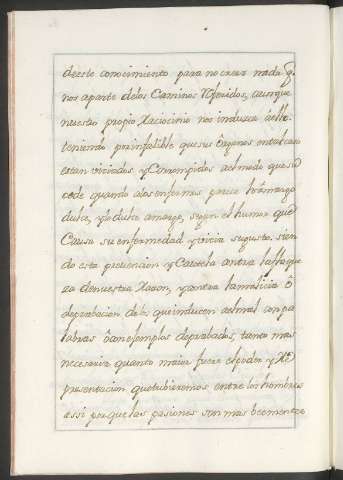 deeste conocimiento para no creer nada q.
nos aparte delos Caminos Referidos, aunque
nuestro propio Raciocinio nos indusca aello
teniendo por infalible que sus organos
estan viciados y Corrompidos al modo que su
cede quando alos enfermos parece lo amargo
dulce, y lo dulce amargo, segun el humor que
Causa su enfermedad y vicia su gusto. sien
do esta prevencion y Cautela contra la flaque
za de nuestra Razon, y contra la malicia ô
depravacion delos que inducen al mal con pa
labras ô con exemplos depravados, tanto mas
necesaria quanto maior fuere el poder y Re
presentacion que tubieremos entre los hombres
assi porque las pasiones son mas